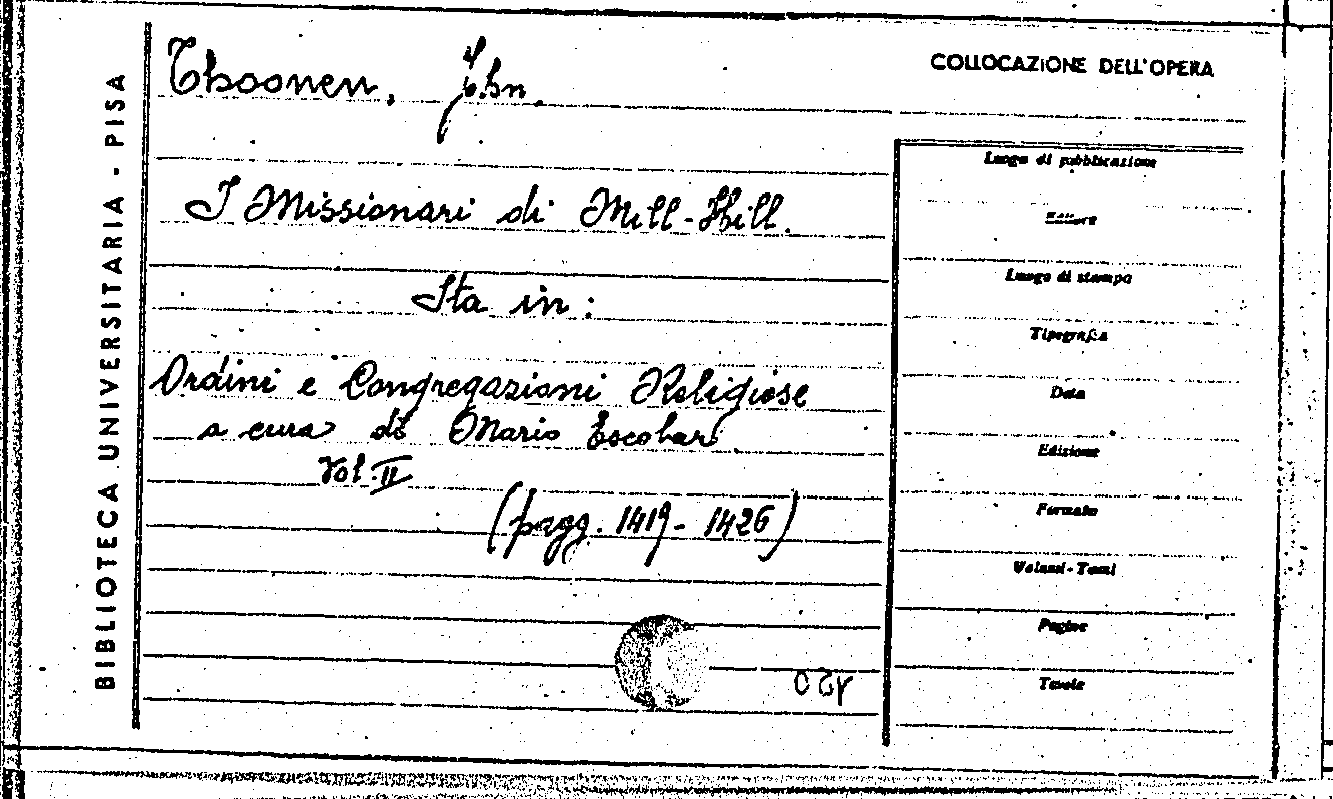 BIBLIOTECA UNIVERSITARIA - PISA
Thoonen, John.
I Missionari di Mill-Hill.
Sta in:
Ordini e Congregazioni Religiose
a cura di Mario Escobar
Vol. II
(pagg. 1419-1426)
COLLOCAZIONE DELL'OPERA
Luogo di pubblicazione
Editore
Luogo di stampa
Tipografia
Data
Edizione
Formato
Volumi - Tomi
Pagine
Tavole